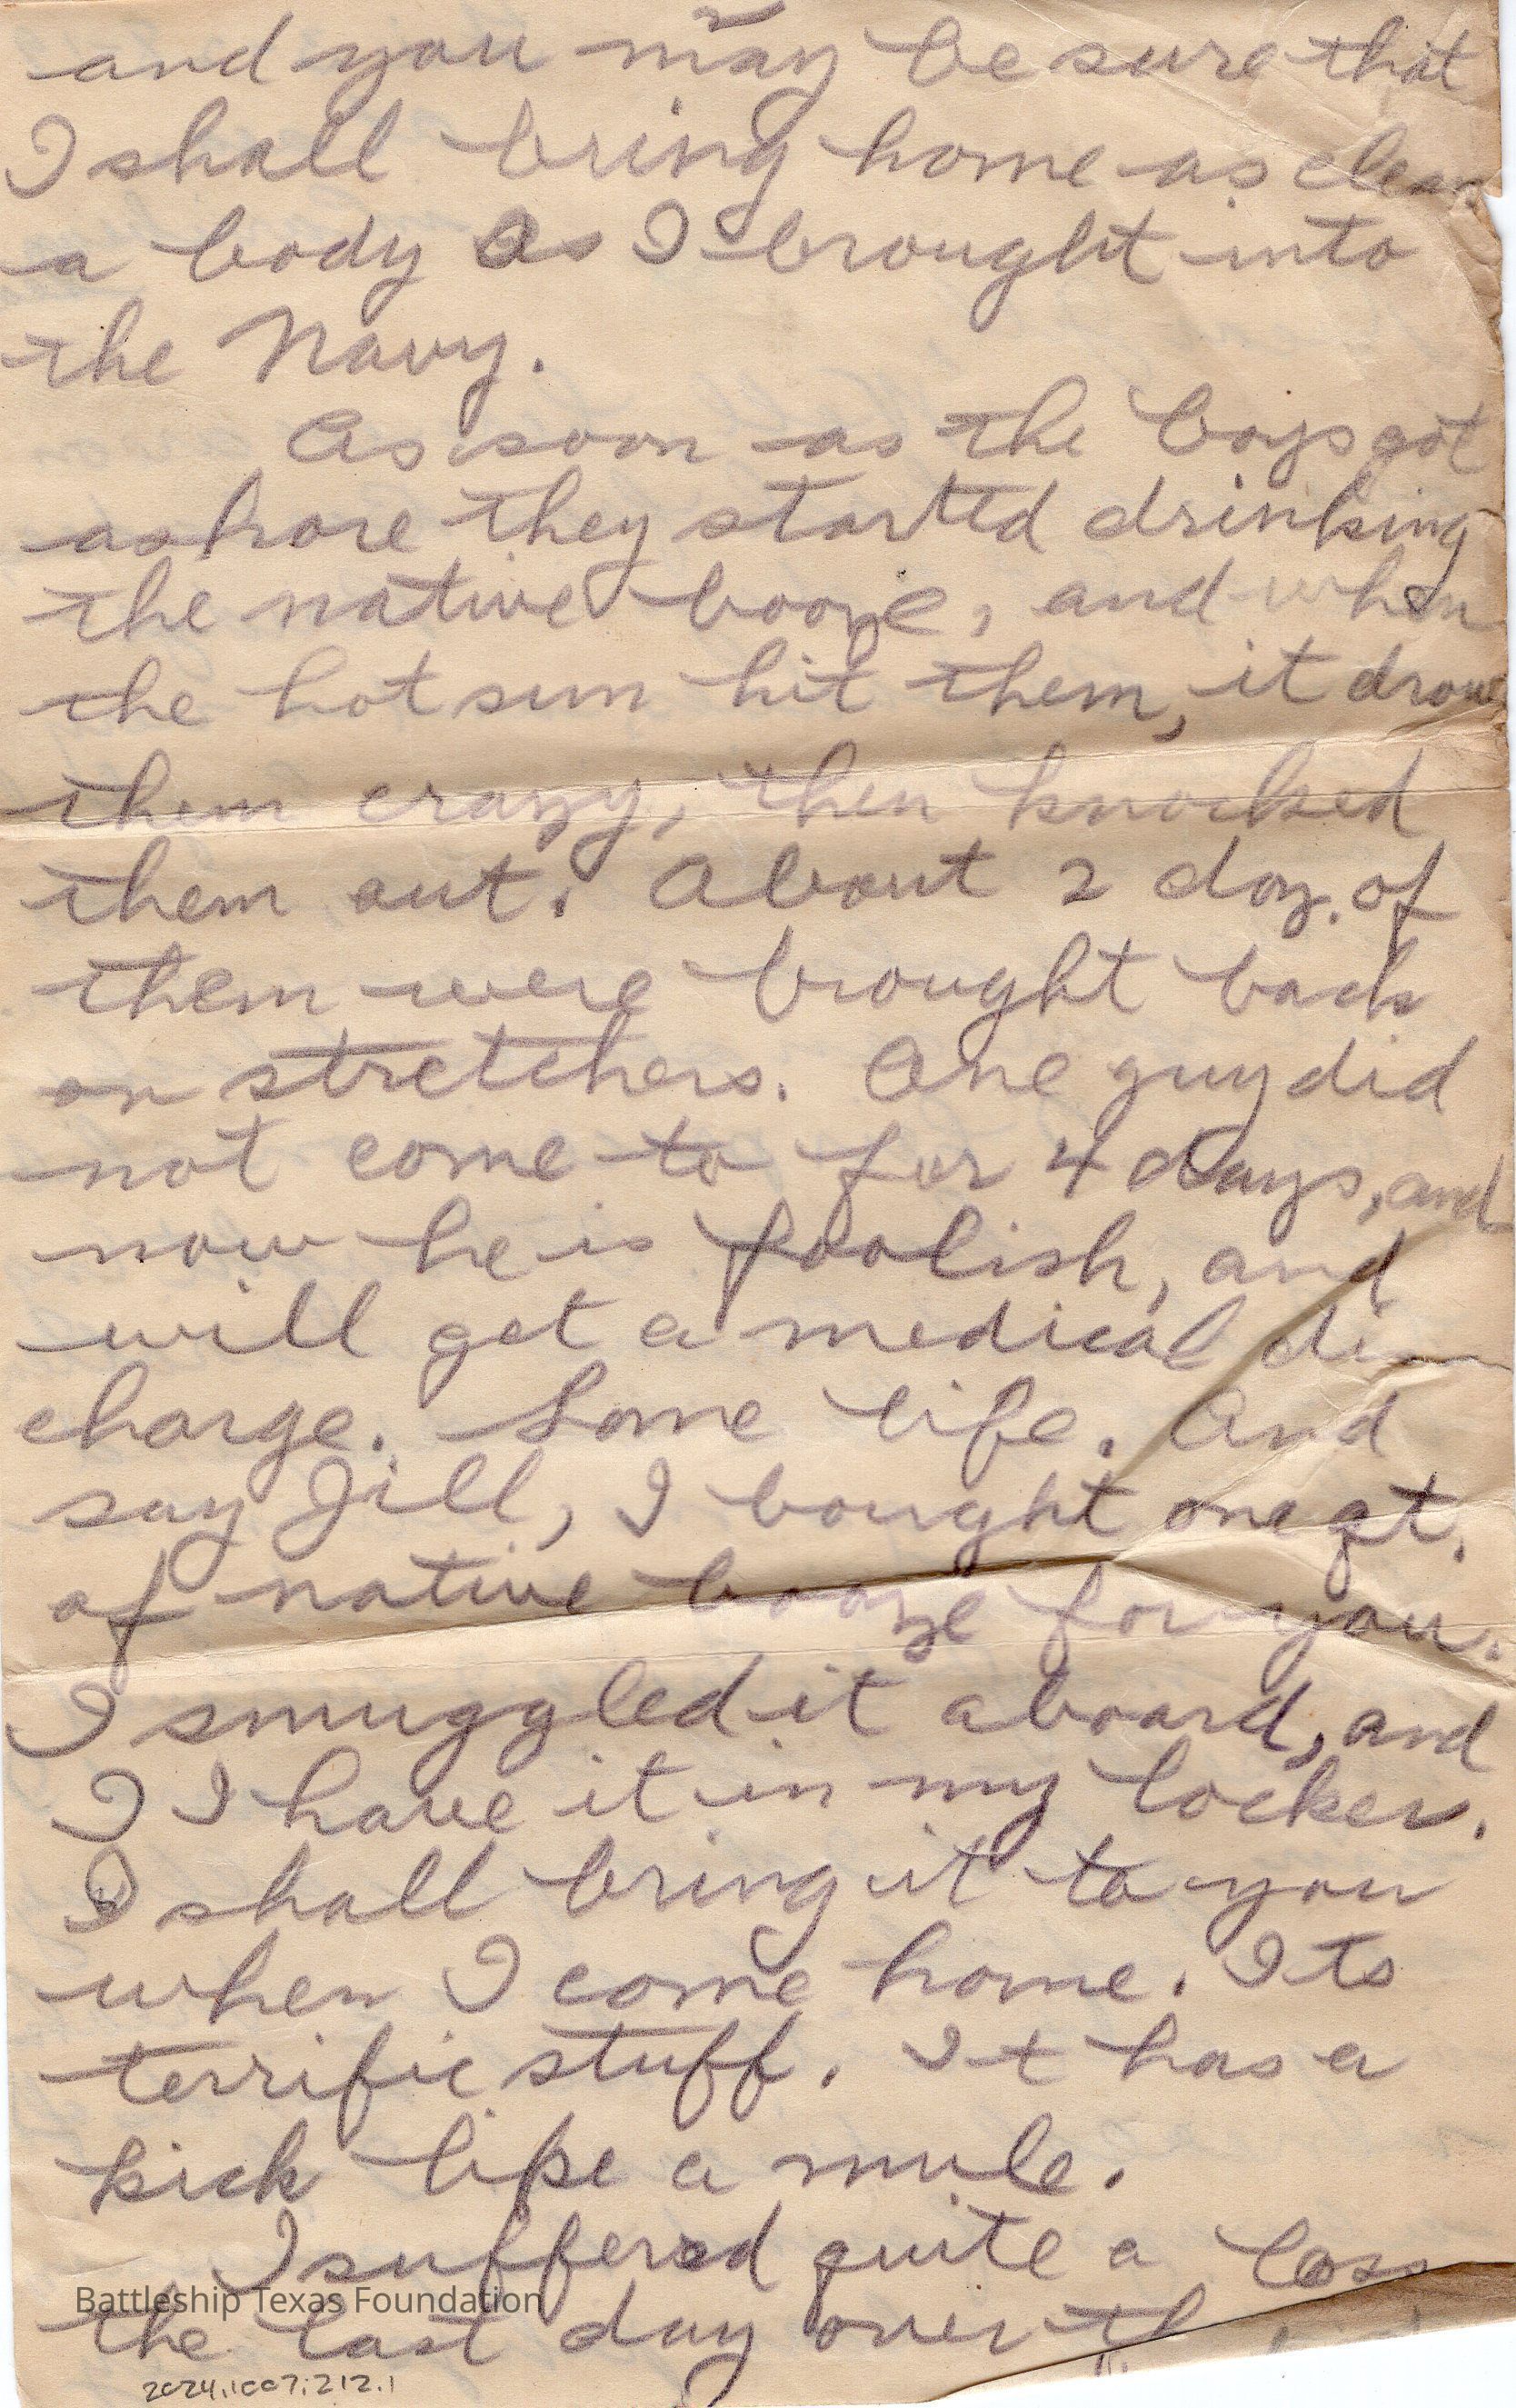 and you may be sure that
I shall bring home as clean
a body as I brought into
the Navy.
As soon as the boys got
ashore they started drinking
the native booze, and when
the hot sun hit them, it drove
them crazy, then knocked
them out. About 2 doz. of
them were brought back
on stretchers. One guy did
not come to for 4 days, and
now he is foolish, and
will get a medical dis
charge. Some life. And
say Jill, I bought one qt.
of native booze for you.
I smuggled it aboard, and
I I have it in my locker.
I shall bring it to you
when I come home. Its
terrific stuff. It has a
kick like a mule.
I suffered quite a loss
Battleship Texas Foundation
the last day over
2024.1007.212.1